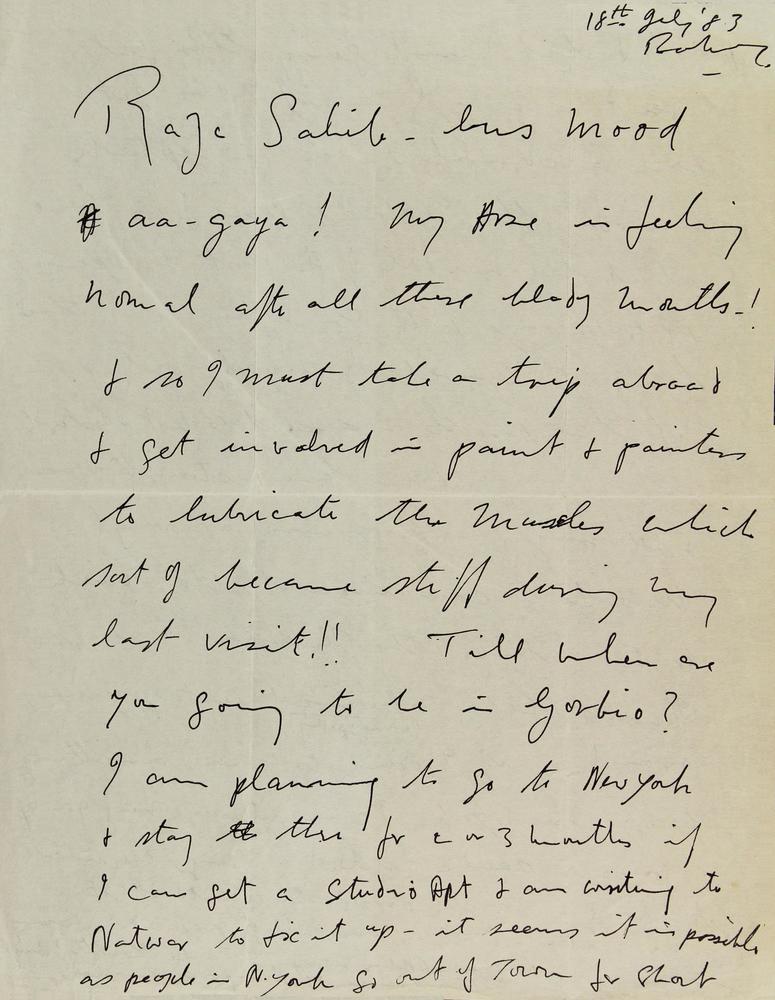 18th July '83
Raja Sahib - bus mood
aa-gaya! My Arse is feeling
normal after all these bloody months-!
& so I must take a trip abroad
& get involved in paint & painters
to lubricate the Muscles which
sort of became stiff during my
last visit!! Till when are
you going to be in Gorbio?
I am planning to go to New York
& stay there for 2 or 3 months if
I can get a Studio Apt & am writing to
Natwar to fix it up - it seems it is possible
as people in N.York go out of Town for short